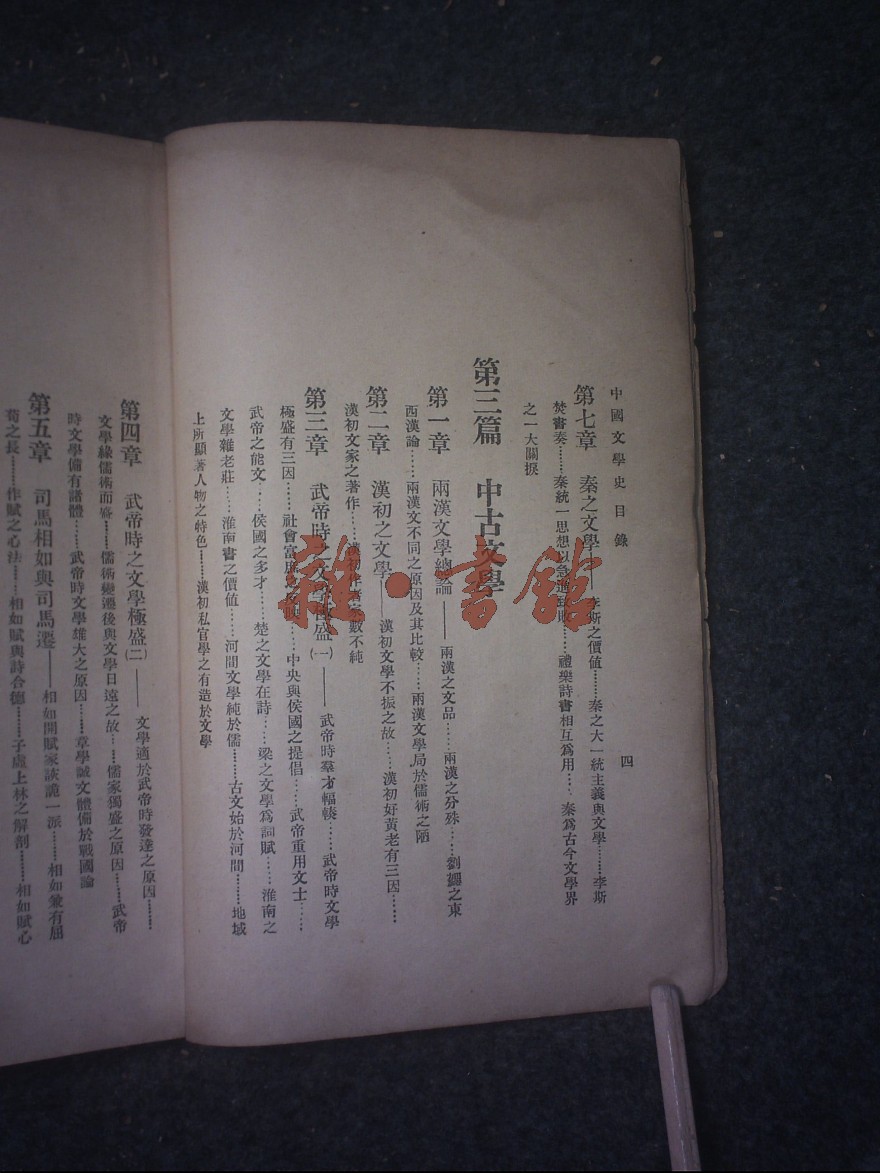 中國文學史目錄
四
第七章 秦之文學——李斯之價値……秦之大一統主義與文學……李斯
焚書奏……秦統一思想以急進致敗……禮樂詩書相互爲用……秦爲古今文學界
之一大關捩
第三篇 中古文學
第一章 兩漢文學總論——兩漢之文品……兩漢之分殊……劉勰之東
西漢論……兩漢文不同之原因及其比較……兩漢文學局於儒術之陋
第二章 漢初之文學——漢初文學不振之故……漢初好黃老有三因……
漢初文家之著作……漢初作者家數不純
第三章 武帝時之文學極盛(一)——武帝時羣才輻輳……武帝時文學
極盛有三因……社會富庶之反映……中央與侯國之提倡……武帝重用文士……
武帝之能文……侯國之多才……楚之文學在詩……梁之文學爲詞賦……淮南之
文學雜老莊……淮南書之價値……河間文學純於儒……古文始於河間……地域
上所顯著人物之特色……漢初私官學之有造於文學
第四章 武帝時之文學極盛(二)——文學適於武帝時發達之原因……
文學緣儒術而盛……儒術變遷後與文學日遠之故……儒家獨盛之原因……武帝
時文學備有諸體……武帝時文學雄大之原因……章學誠文體備於戰國論
第五章 司馬相如與司馬遷——相如開賦家詼詭一派……相如兼有屈
荀之長……作賦之心法……相如賦與詩合德……子虛上林之解剖……相如賦心
雜·書館